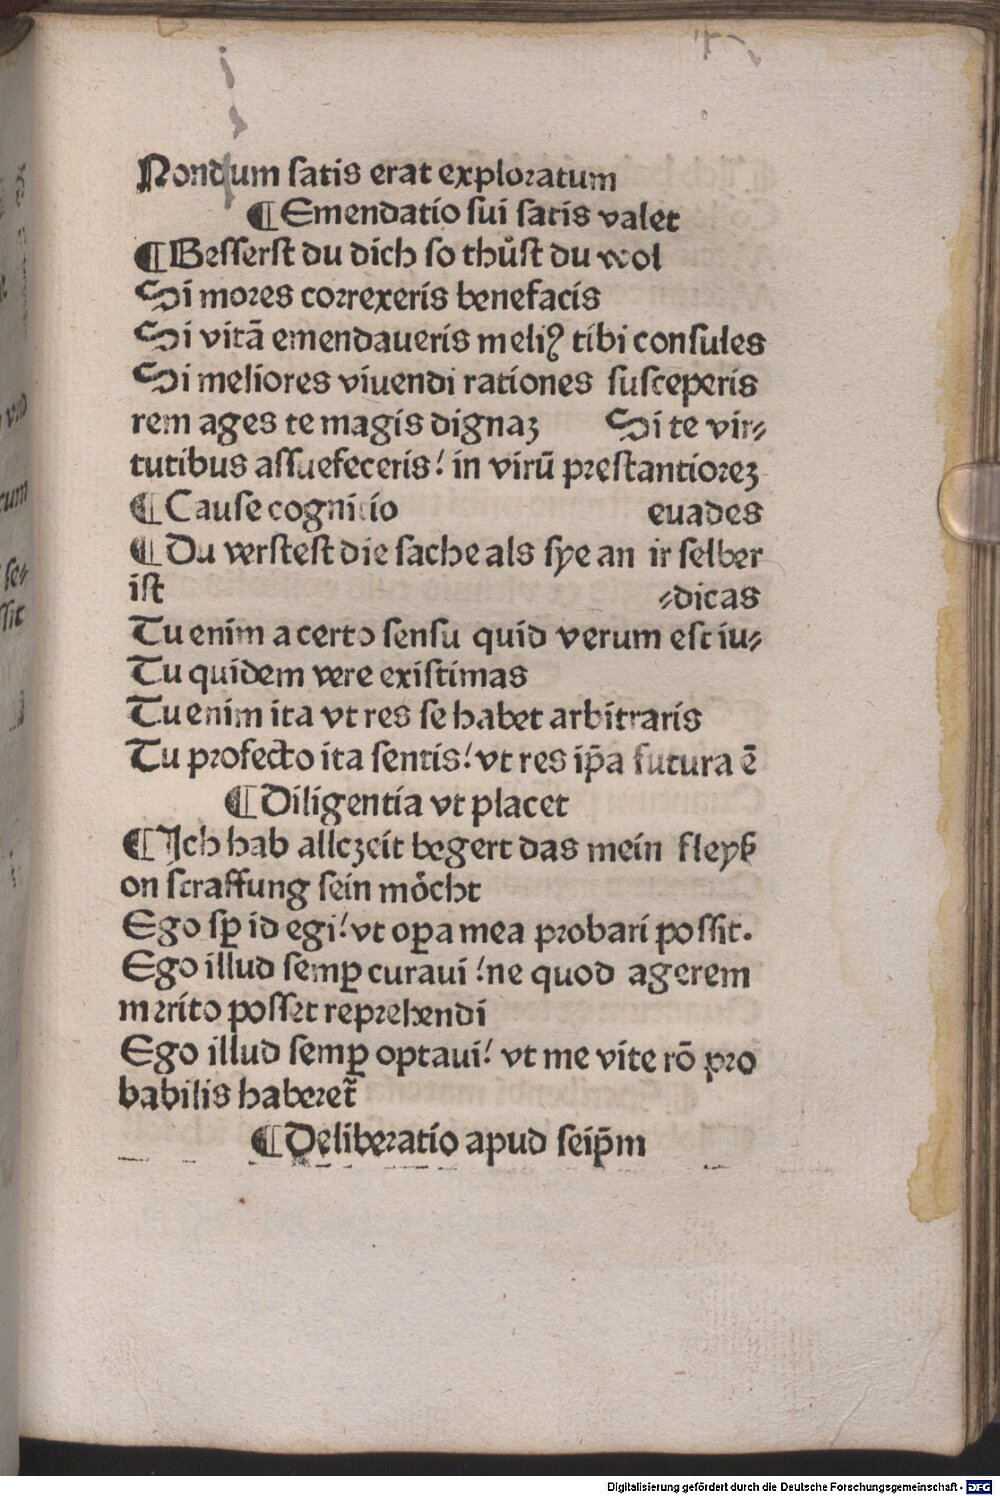 Nondum ſatis erat exploꝛatum
¶ Emendatio ſui ſatis valet
¶ Beſſerſt du dich ſo thůſt du wol
Si moꝛes coꝛrexeris benefacis
Si vitā emendaueris meliꝰ tibi conſules
Si melioꝛes viuendi rationes ſuſceperis
rem ages te magis dignaꝫ Si te vir⸗
tutibus aſſuefeceris! in virū preſtantioreꝫ
¶ Cauſe cognitio euades
¶ Du verſteſt die ſache als ſye an ir ſelber
iſt ⸗dicas
Tu enim a certo ſenſu quid verum eſt iu⸗
Tu quidem vere exiſtimas
Tu enim ita vt res ſe habet arbitraris
Tu pꝛofecto ita ſentis! vt res ip̄a futura ē
¶ Diligentia vt placet
¶ Ich hab allczeit begert das mein fleyß
on ſtraffung ſein moͤcht
Ego ſꝑ id egi! vt oꝑa mea pꝛobari poſſit.
Ego illud ſemꝑ curaui! ne quod agerem
merito poſſet repꝛehendi
Ego illud ſemꝑ optaui! vt me vite rō pꝛo
babilis haberet᷑
¶ Deliberatio apud ſeip̄m
Digitalisierung gefördert durch die Deutsche Forschungsgemeinschaft - DFG